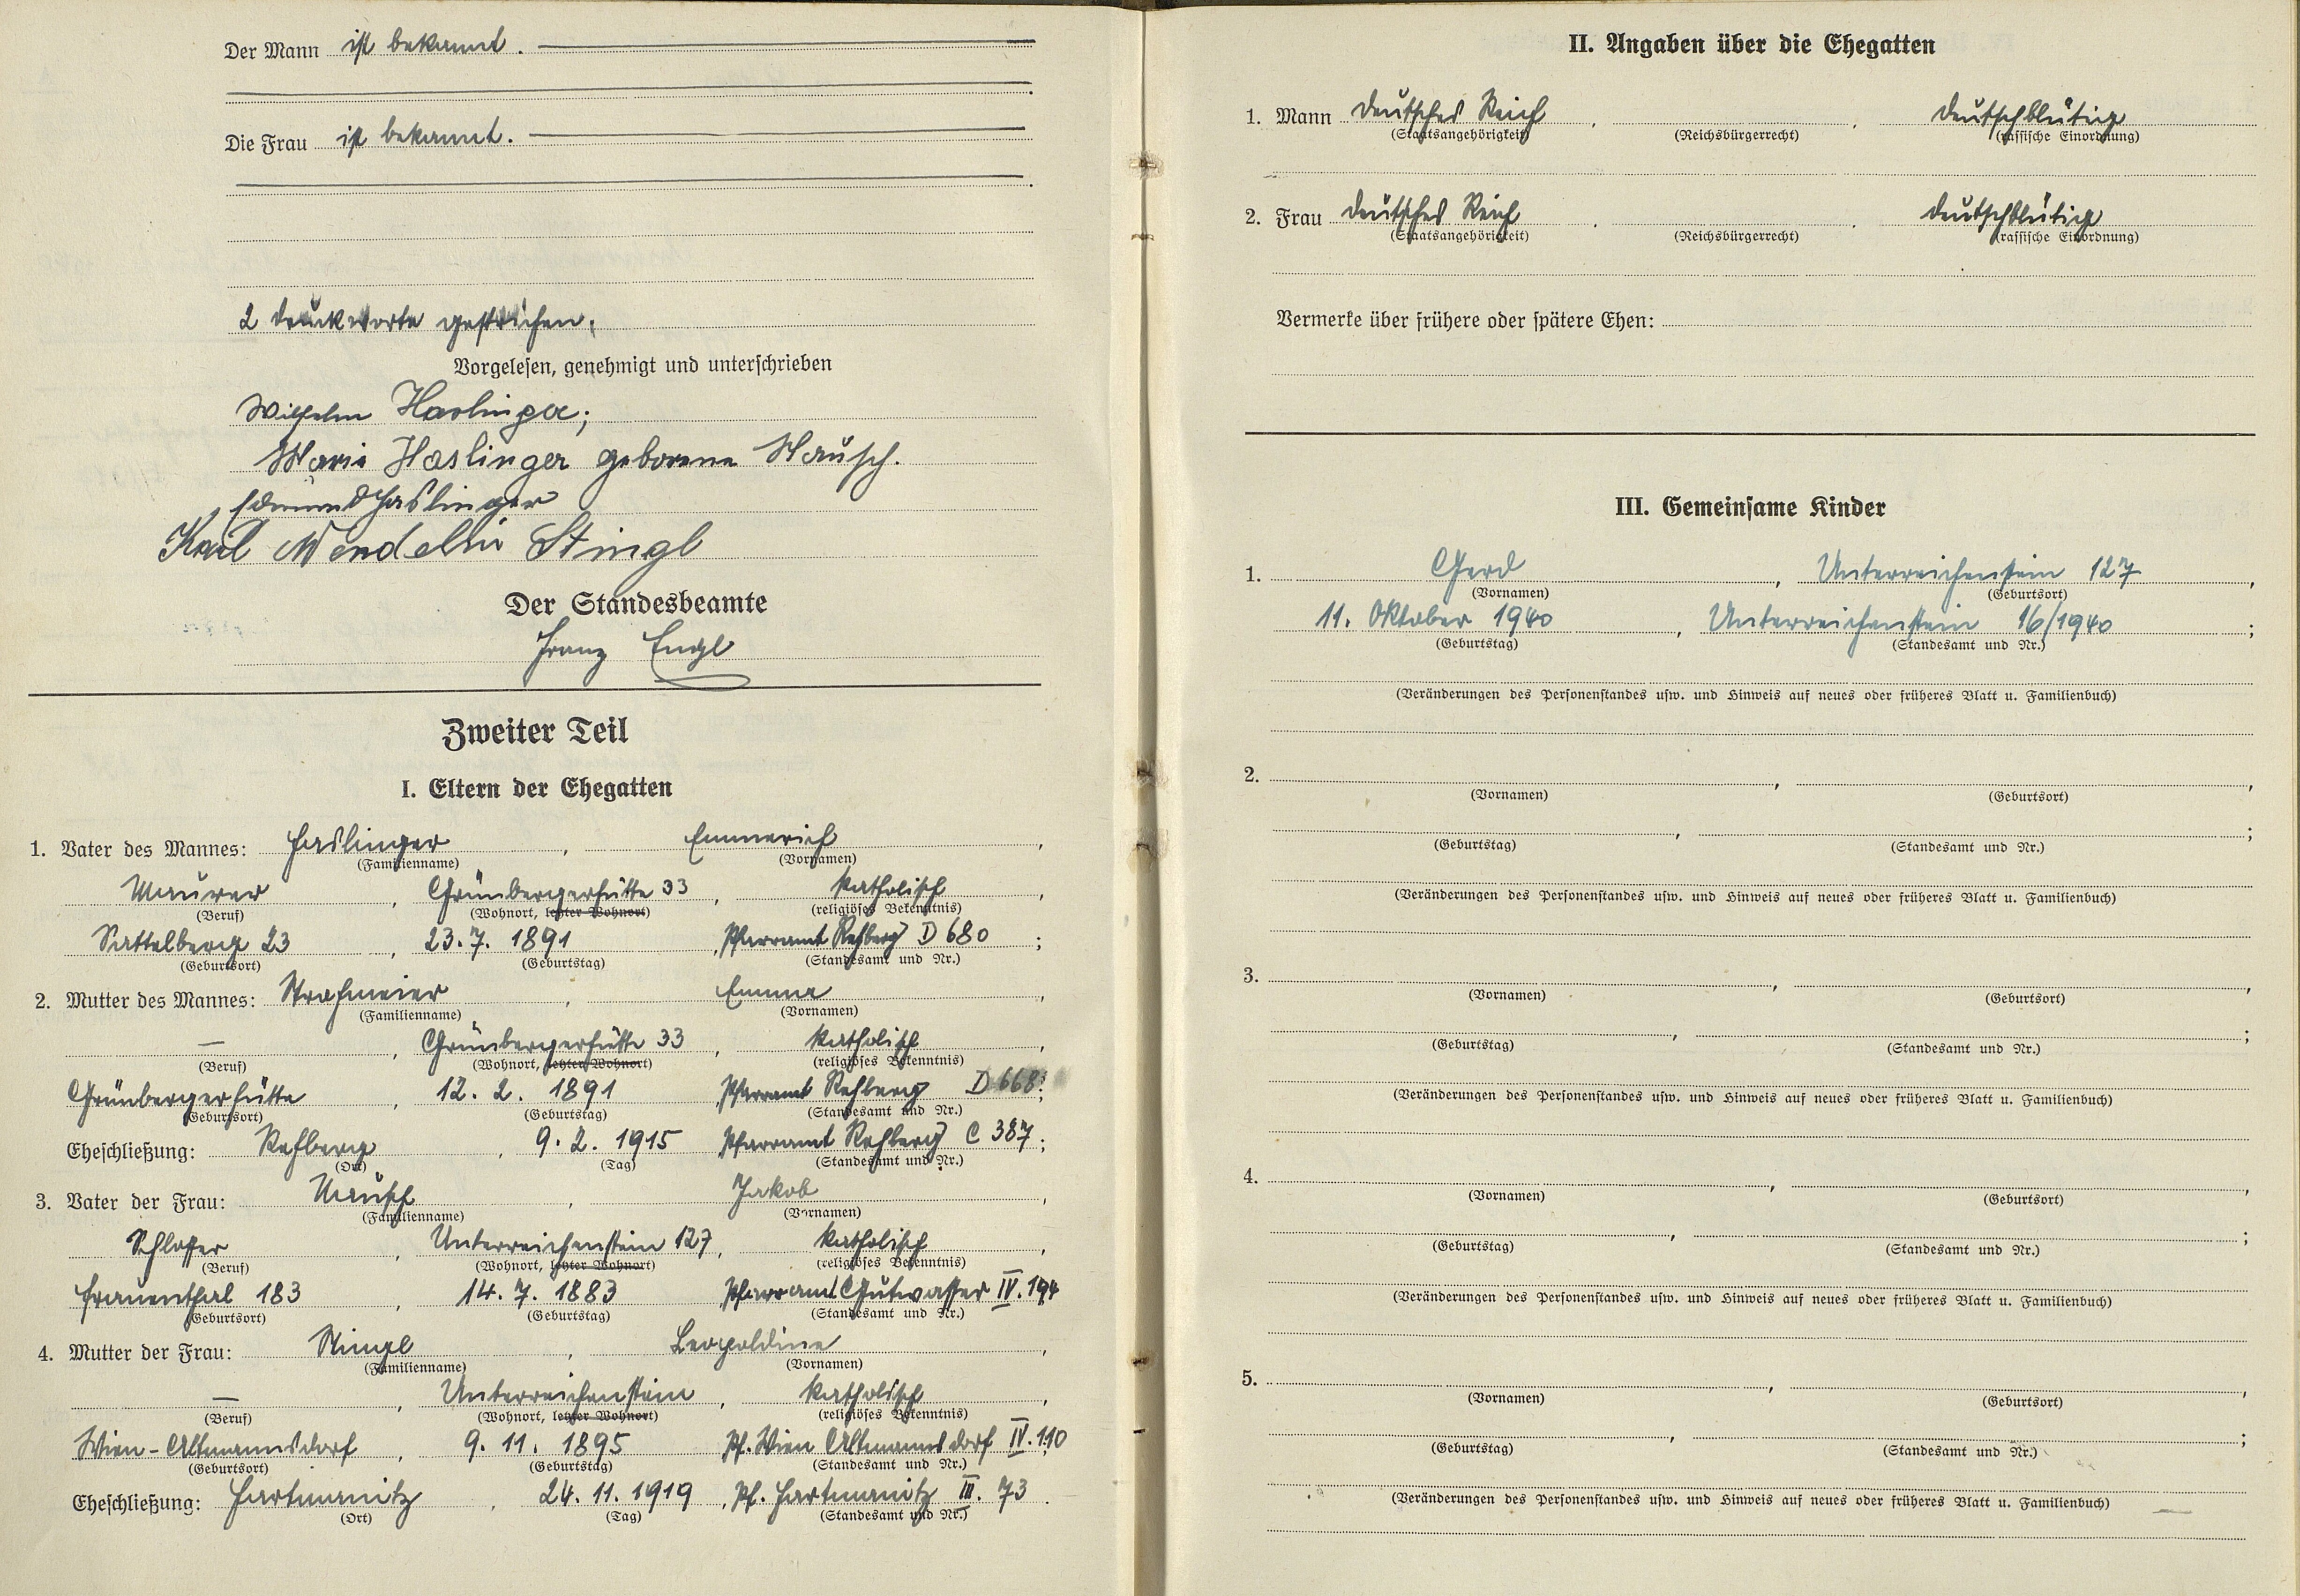 Der Mann ist bekannt.
Die Frau ist bekannt.
2 Druckworte gestrichen.
Vorgelesen, genehmigt und unterschrieben
Wilhelm Haslinger;
Maria Haslinger geborene Mausch.
Edmund Haslinger
Karl Wendelin Stingl
Der Standesbeamte
Franz Engl
Zweiter Teil
I. Eltern der Ehegatten
1. Vater des Mannes: Haslinger, Emmerich,
(Familienname) (Vornamen)
Maurer, Grünbergerhütte 33, katholisch,
(Beruf) (Wohnort, letzter Wohnort) (religiöses Bekenntnis)
Sattelberg 23, 23.7. 1891, Pfarramt Rehberg D 680;
(Geburtsort) (Geburtstag) (Standesamt und Nr.)
2. Mutter des Mannes: Strohmeier, Emma,
(Familienname) (Vornamen)
—, Grünbergerhütte 33, katholisch,
(Beruf) (Wohnort, letzter Wohnort) (religiöses Bekenntnis)
Grünbergerhütte, 12. 2. 1891 Pfarramt Rehberg D 668;
(Geburtsort) (Geburtstag) (Standesamt und Nr.)
Eheschließung: Rehberg, 9. 2. 1915 Pfarramt Rehberg C 387;
(Ort) (Tag) (Standesamt und Nr.)
3. Vater der Frau: Mausch, Jakob,
(Familienname) (Vornamen)
Schlosser, Unterreichenstein 127, katholisch,
(Beruf) (Wohnort, letzter Wohnort) (religiöses Bekenntnis)
Frauenthal 183, 14. 7. 1883 Pfarramt Gutwasser IV. 194
(Geburtsort) (Geburtstag) (Standesamt und Nr.)
4. Mutter der Frau: Stingl, Leopoldine,
(Familienname) (Vornamen)
—, Unterreichenstein, katholisch,
(Beruf) (Wohnort, letzter Wohnort) (religiöses Bekenntnis)
Wien-Altmannsdorf, 9. 11. 1895 Pf. Wien Altmannsdorf IV. 110
(Geburtsort) (Geburtstag) (Standesamt und Nr.)
Eheschließung: Hartmanitz, 24. 11. 1919, Pf. Hartmanitz III. 73
(Ort) (Tag) (Standesamt und Nr.)
II. Angaben über die Ehegatten
1. Mann Deutsches Reich, , deutschblütig
(Staatsangehörigkeit) (Reichsbürgerrecht) (rassische Einordnung)
2. Frau Deutsches Reich, , deutschblütig
(Staatsangehörigkeit) (Reichsbürgerrecht) (rassische Einordnung)
Vermerke über frühere oder spätere Ehen:
III. Gemeinsame Kinder
1. Gerd, Unterreichenstein 127,
(Vornamen) (Geburtsort)
11. Oktober 1940, Unterreichenstein 16/1940;
(Geburtstag) (Standesamt und Nr.)
(Veränderungen des Personenstandes usw. und Hinweis auf neues oder früheres Blatt u. Familienbuch)
2. , ,
(Vornamen) (Geburtsort)
, ;
(Geburtstag) (Standesamt und Nr.)
(Veränderungen des Personenstandes usw. und Hinweis auf neues oder früheres Blatt u. Familienbuch)
3. , ,
(Vornamen) (Geburtsort)
, ;
(Geburtstag) (Standesamt und Nr.)
(Veränderungen des Personenstandes usw. und Hinweis auf neues oder früheres Blatt u. Familienbuch)
4. , ,
(Vornamen) (Geburtsort)
, ;
(Geburtstag) (Standesamt und Nr.)
(Veränderungen des Personenstandes usw. und Hinweis auf neues oder früheres Blatt u. Familienbuch)
5. , ,
(Vornamen) (Geburtsort)
, ;
(Geburtstag) (Standesamt und Nr.)
(Veränderungen des Personenstandes usw. und Hinweis auf neues oder früheres Blatt u. Familienbuch)